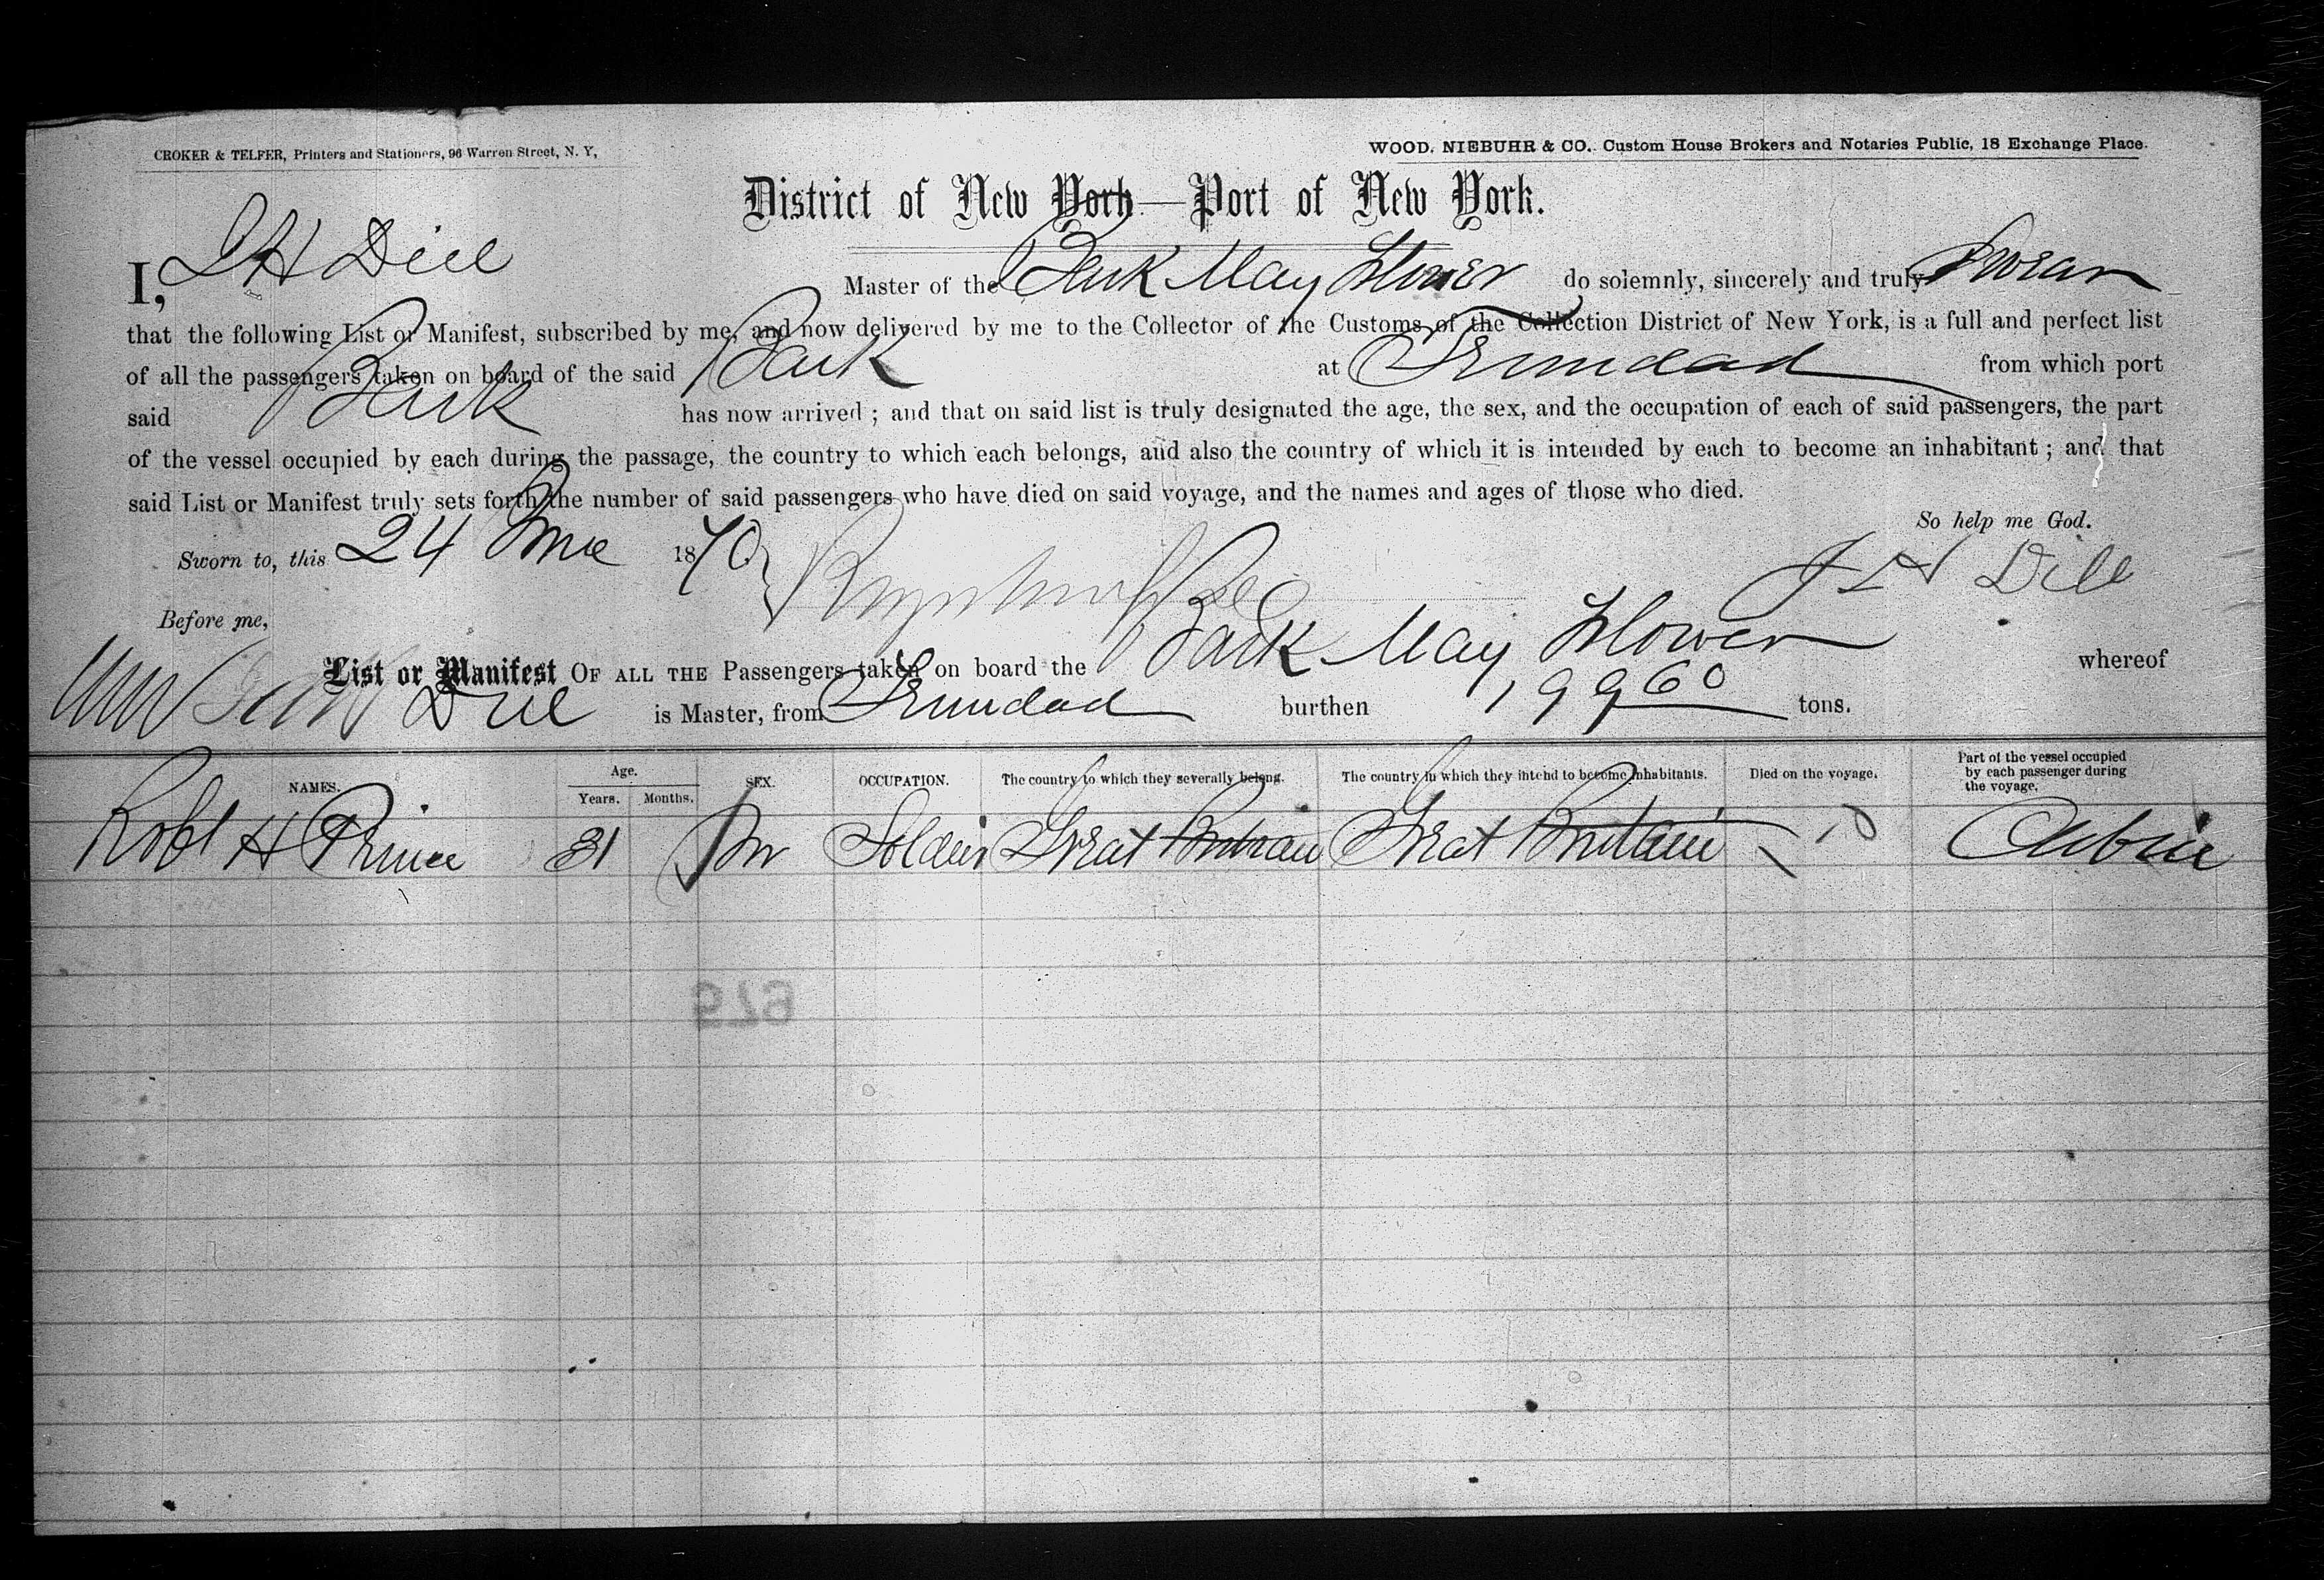 CROKER & TELFER, Printers and Stationers, 96 Warren Street, N. Y,
WOOD, NIEBUHR & CO. Custom House Brokers and Notaries Public, 18 Exchange Place.
District of New York—Port of New York.
I, J H Dill Master of the Bark May Flower do solemnly, sincerely and truly Swear
that the following List or Manifest, subscribed by me, and now delivered by me to the Collector of the Customs of the Collection District of New York, is a full and perfect list
of all the passengers taken on board of the said Bark at Trinidad from which port
said Bark has now arrived ; and that on said list is truly designated the age, the sex, and the occupation of each of said passengers, the part
of the vessel occupied by each during the passage, the country to which each belongs, and also the country of which it is intended by each to become an inhabitant ; and that
said List or Manifest truly sets forth the number of said passengers who have died on said voyage, and the names and ages of those who died.
So help me God.
Sworn to, this 24 June 1870 J H Dill
Before me,
List or Manifest OF ALL THE Passengers taken on board the Bark May Flower whereof
Dill is Master, from Trinidad burthen 199 60 tons.
NAMES. Age. Years. Months. SEX. OCCUPATION. The country to which they severally belong. The country in which they intend to become inhabitants. Died on the voyage. Part of the vessel occupied by each passenger during the voyage.
Robt H Prince 31 m Soldier Great Britain Great Britain Cabin
629